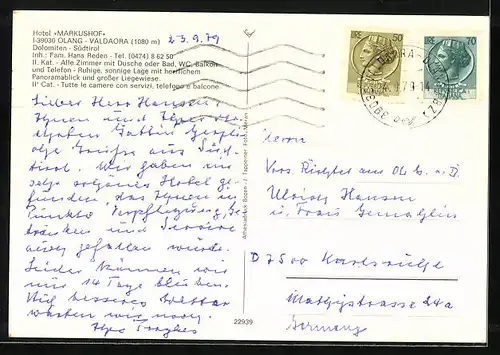 Hotel «MARKUSHOF»
I-39030 OLANG - VALDAORA (1080 m)
Dolomiten - Südtirol
Inh.: Fam. Hans Reden - Tel. (0474) 8 62 50
II. Kat. - Alle Zimmer mit Dusche oder Bad, WC, Balkon
und Telefon - Ruhige, sonnige Lage mit herrlichem
Panoramablick und großer Liegewiese.
IIª Kat. - Tutte le camere con servizi, telefono e balcone.
23.9.79
Lieber Herr Hansen!
Ihnen und Ihrer
Gattin
Grüße aus Süd-
tirol. Wir haben im
Hotel ge-
funden, das Ihnen in
Punkto Verpflegung, Ge-
tränken und Service
auch gefallen würde.
Leider können wir
nur 14 Tage bleiben.
Viel besseres Wetter
warten wir noch.
Ihre
22939
LIRE 50
LIRE 70
Herrn
Vors. Richter am OLG a.D.
Ulrich Hansen
u. Frau Gemahlin
D 7500 Karlsruhe
Mathystrasse 24a
Germany